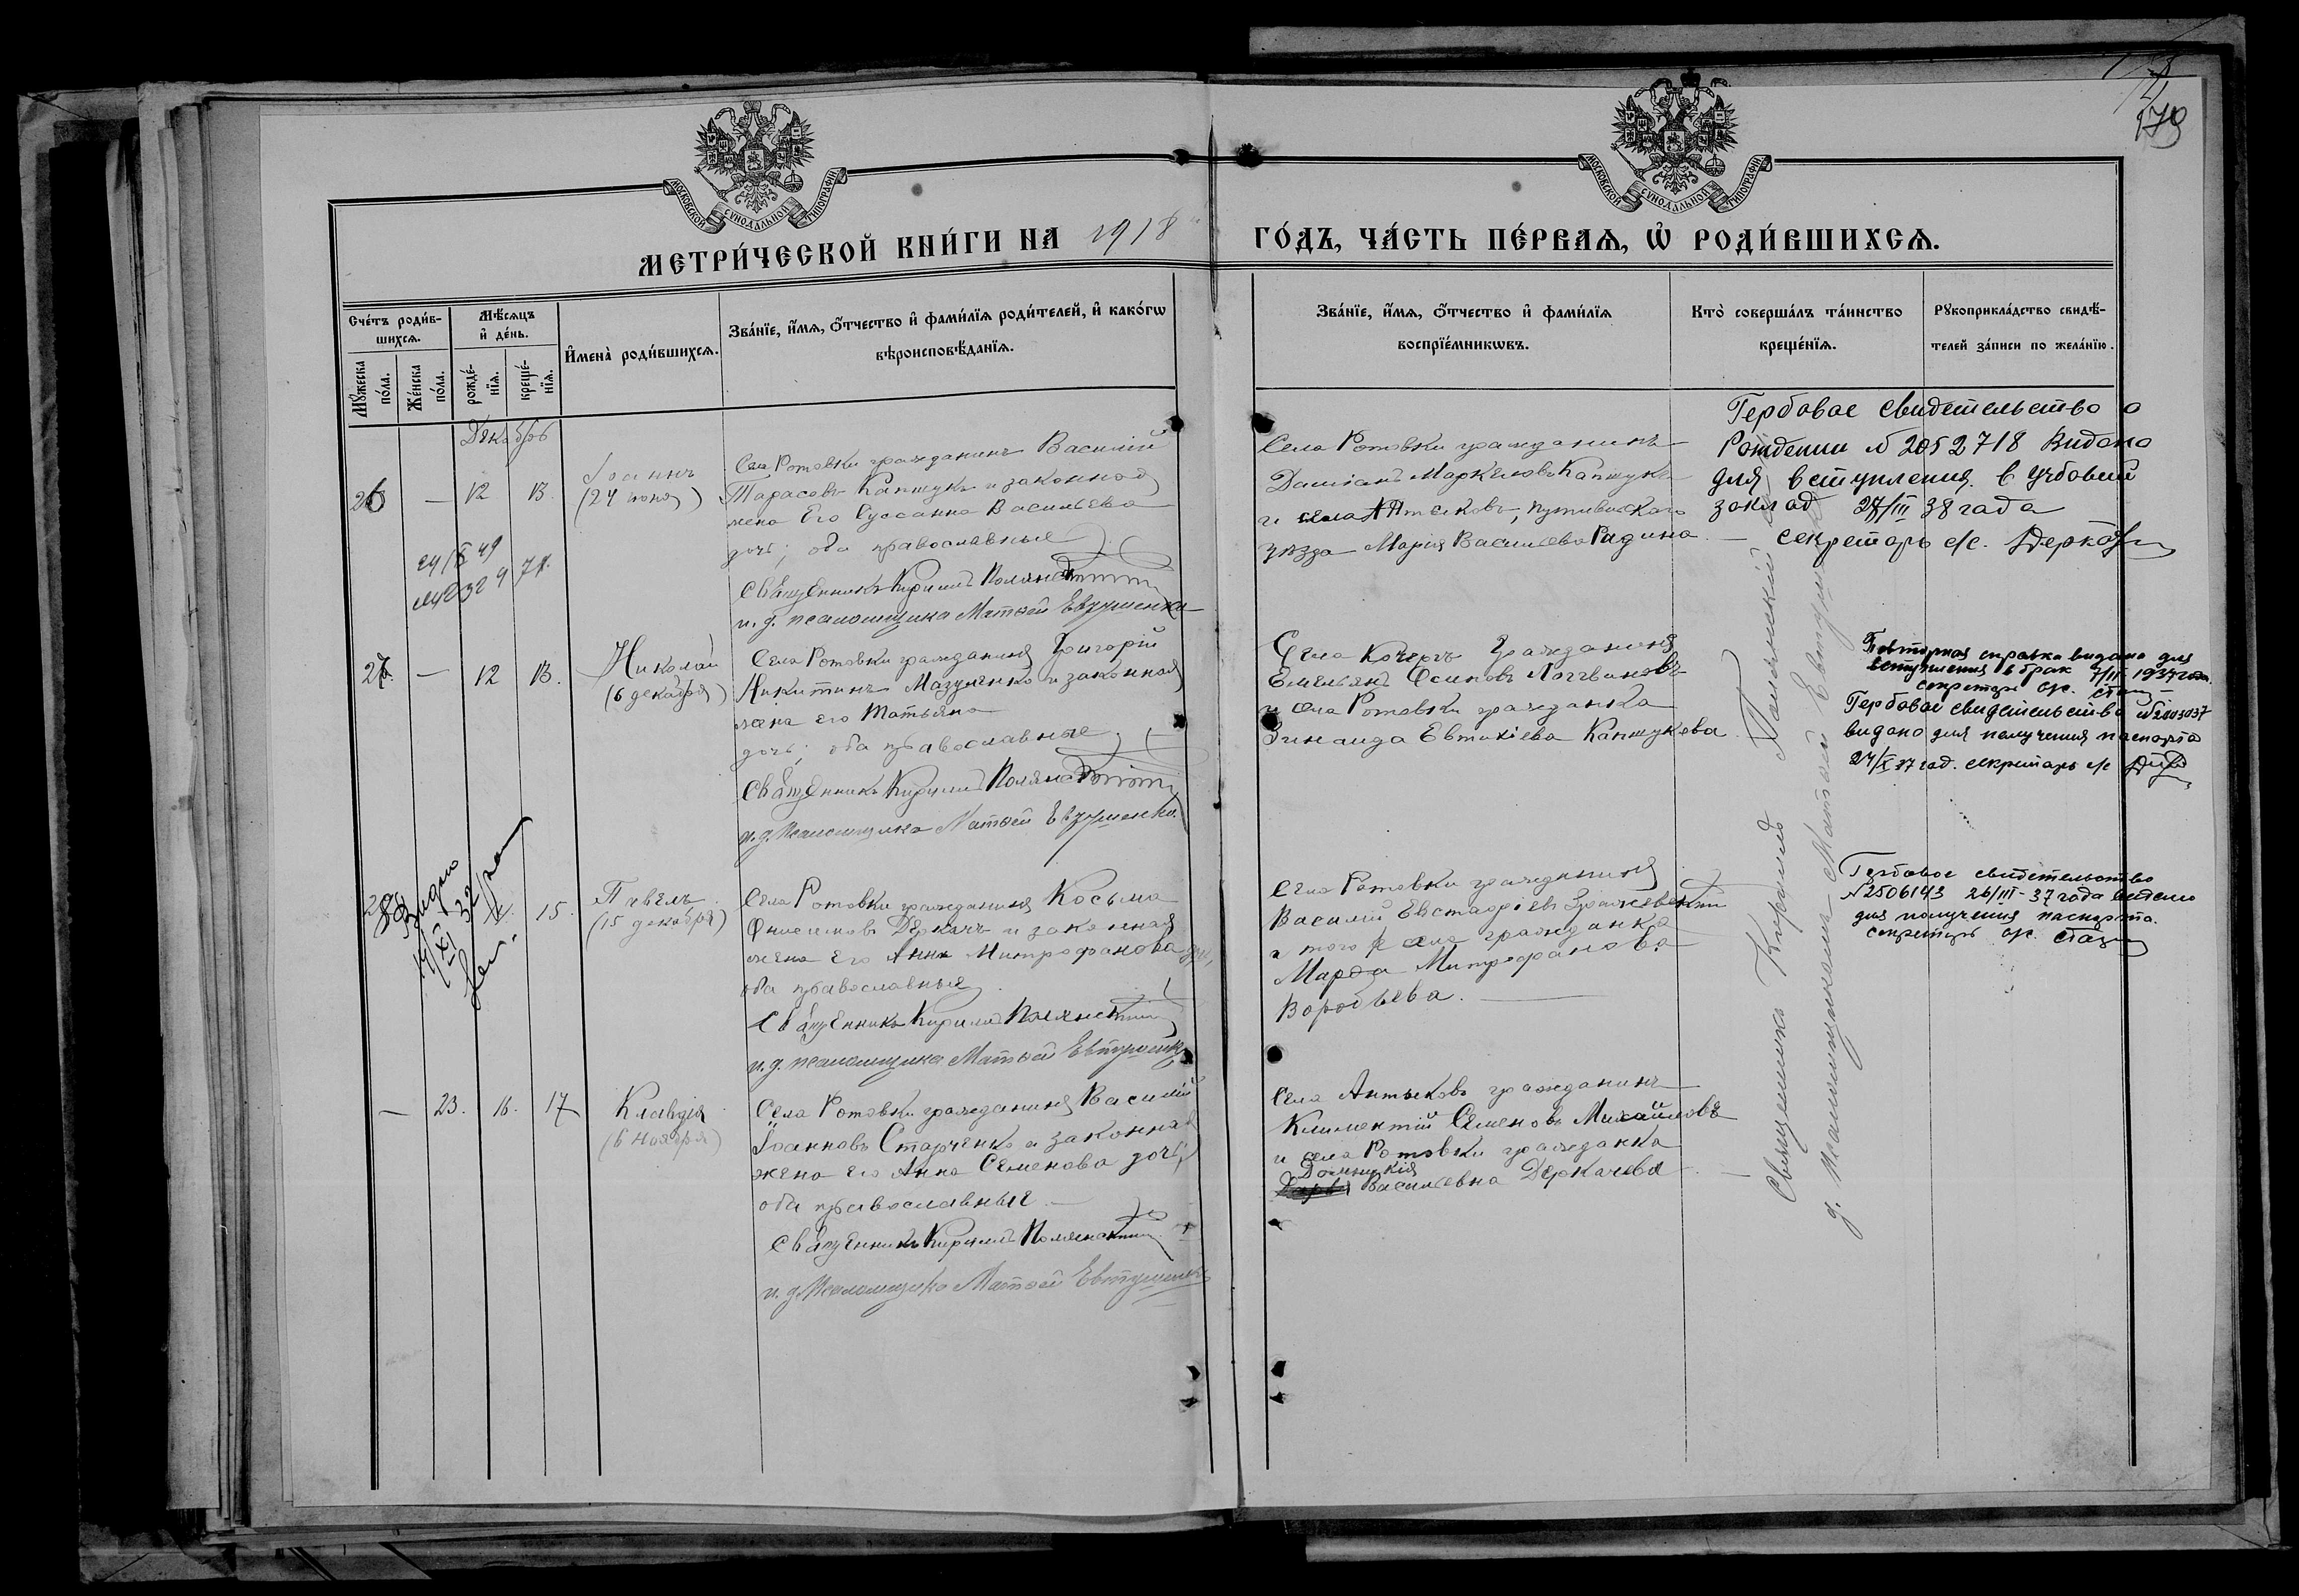 179
МОСКОВСКОЙ СѴНОДАЛЬНОЙ ТИПОГРАФІИ
МОСКОВСКОЙ СѴНОДАЛЬНОЙ ТИПОГРАФІИ
МЕТРИ́ЧЕСКОЙ КНИ́ГИ НА 1918
ГО́ДЪ, ЧА́СТЬ ПЕ́РВАѦ, Ѡ҆ РОДИ́ВШИХСѦ.
Сче́тъ роди́в-
шихсѧ.
Мꙋ́жеска по́ла.
Же́нска по́ла.
Мѣ́сѧцъ
и҆ де́нь.
рожде́-
нїѧ.
креще́-
нїѧ.
И҆мена̀ роди́вшихсѧ.
Зва́нїе, и҆́мѧ, ѻ҆́тчество и҆ фами́лїѧ роди́телей, и҆ како́гѡ
вѣроисповѣ́данїѧ.
Зва́нїе, и҆́мѧ, ѻ҆́тчество и҆ фами́лїѧ
воспрїе́мникѡвъ.
Кто̀ соверша́лъ та́инство
креще́нїѧ.
Рꙋкоприкла́дство свидѣ́-
телей за́писи по жела́нїю.
Декабрь
26
—
12
13.
Іоаннъ
(24 іюня)
Села Ротовки гражданинъ Василій
Тарасовъ Капшукъ и законная
жена Его Суссанна Васильева
дочь; оба православные
Священникъ Кириллъ Полянскій
и. д. псаломщика Матѳей Евтушенко
Села Ротовки гражданинъ
Даміанъ Маркеловъ Капшукъ
и села Антыковъ, Путивльскаго
уѣзда Марія Васильева Радина
Гербовое свидетельство о
Рождении № 2052718 Видано
для вступления в учбовий
заклад 27/III 38 года
секретарь с/с. Деркач
27.
—
12
13.
Николай
(6 декабря)
Села Ротовки гражданинъ Григорій
Никитинъ Мазуленко и законная
жена его Татьяна
дочь; оба православные
Священникъ Кириллъ Полянскій
и. д. псаломщика Матѳей Евтушенко
Села Кочергъ Гражданинъ
Емельянъ Осиповъ Логвиновъ
и села Ротовки гражданка
Зинаида Евтихіева Капшукова
Повторная справка видана для
вступления в брак 7/II 1937 года.
секретарь с/с.
Гербовое свидетельство № 2103037
видано для получения паспорта
24/X 37 год. секретарь с/с
15.
Павелъ
(15 декабря)
Села Ротовки гражданинъ Косьма
Онисимовъ Деркачъ и законная
жена Его Анна Митрофанова доч,
оба православные
Священникъ Кириллъ Полянскій
и. д. псаломщика Матѳей Евтушенко
Села Ротовки гражданинъ
Василій Евстафіевъ
и того же села гражданка
Марѳа Митрофанова
Воробьева.
Гербовое свидетельство
№ 2506143 26/III-37 года видано
для получения паспорта.
секретарь с/с.
—
23.
16.
17
Клавдія
(6 ноября)
Села Ротовки гражданинъ Василій
Іоанновъ Старченко и законная
жена его Анна Семенова дочь,
оба православные
Священникъ Кириллъ Полянскій
и. д. Псаломщика Матѳей Евтушенко
Села Антыковъ гражданинъ
Климентій Семеновъ Михайловъ
и села Ротовки гражданка
Домникія
Васильевна Деркачева
Священникъ Кириллъ Полянскій
д. псаломщика Матѳей Евтушенко